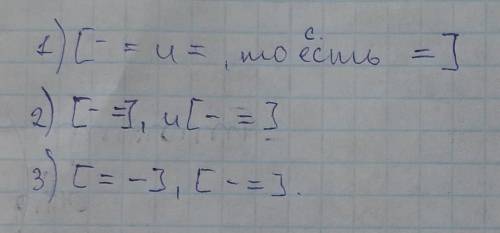 1) [- = и =, то есть с. =]
2) [- =], и [- =]
3) [= -], [- =].